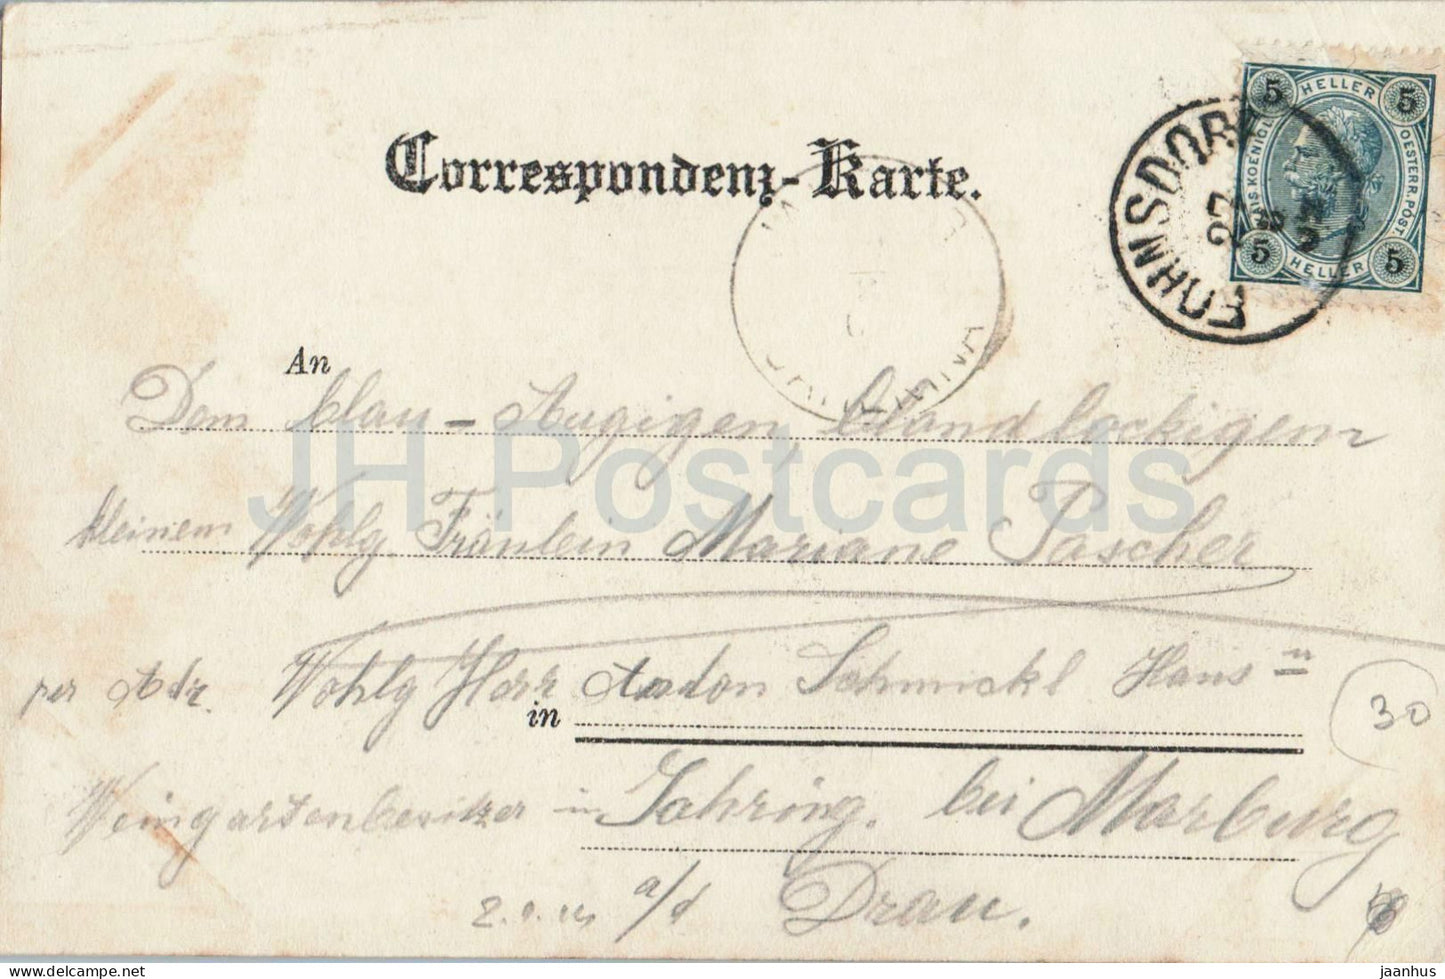 Correspondenz-Karte.
5 HELLER 5
KAIS KOENIGL. OESTERR. POST.
5 HELLER 5
FOHNSDORF
27
An
Dem blau-Augigen, blond lockigem
kleinem Wohlg. Fräulein Mariane Pascher
per Adr. Wohlg Herr Andon Schmickl Haus u
in
Weingartenbesitzer in Jahring. bei Marburg
a/d Drau.
30
JH Postcards
jaanhus